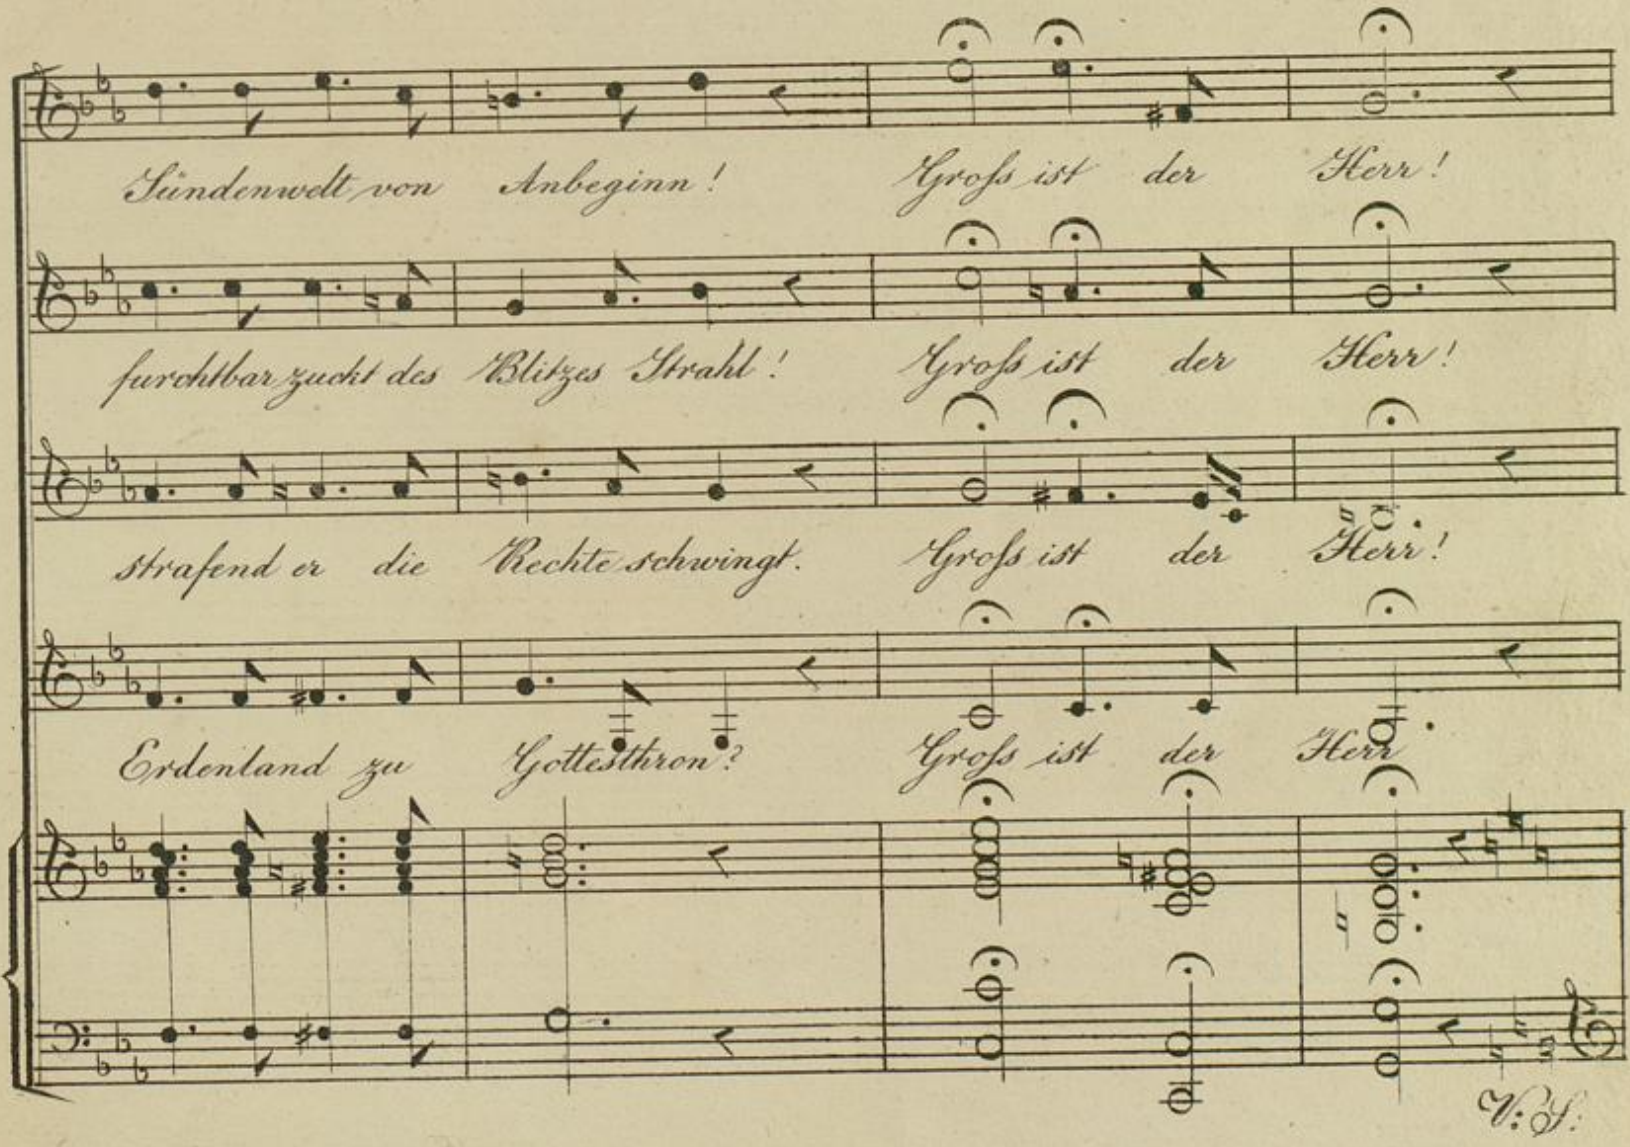 Sündenwelt von Anbeginn! Groſs ist der Herr!
furchtbar zuckt des Blitzes Strahl! Groſs ist der Herr!
strafend er die Rechte schwingt. Groſs ist der Herr!
Erdenland zu Gottesthron? Groſs ist der Herr
V: S: